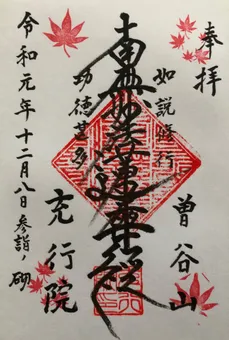 奉拝
曽谷山
如説修行
南無妙法蓮華経
功徳甚多
充行院
令和元年十二月八日参詣ノ砌